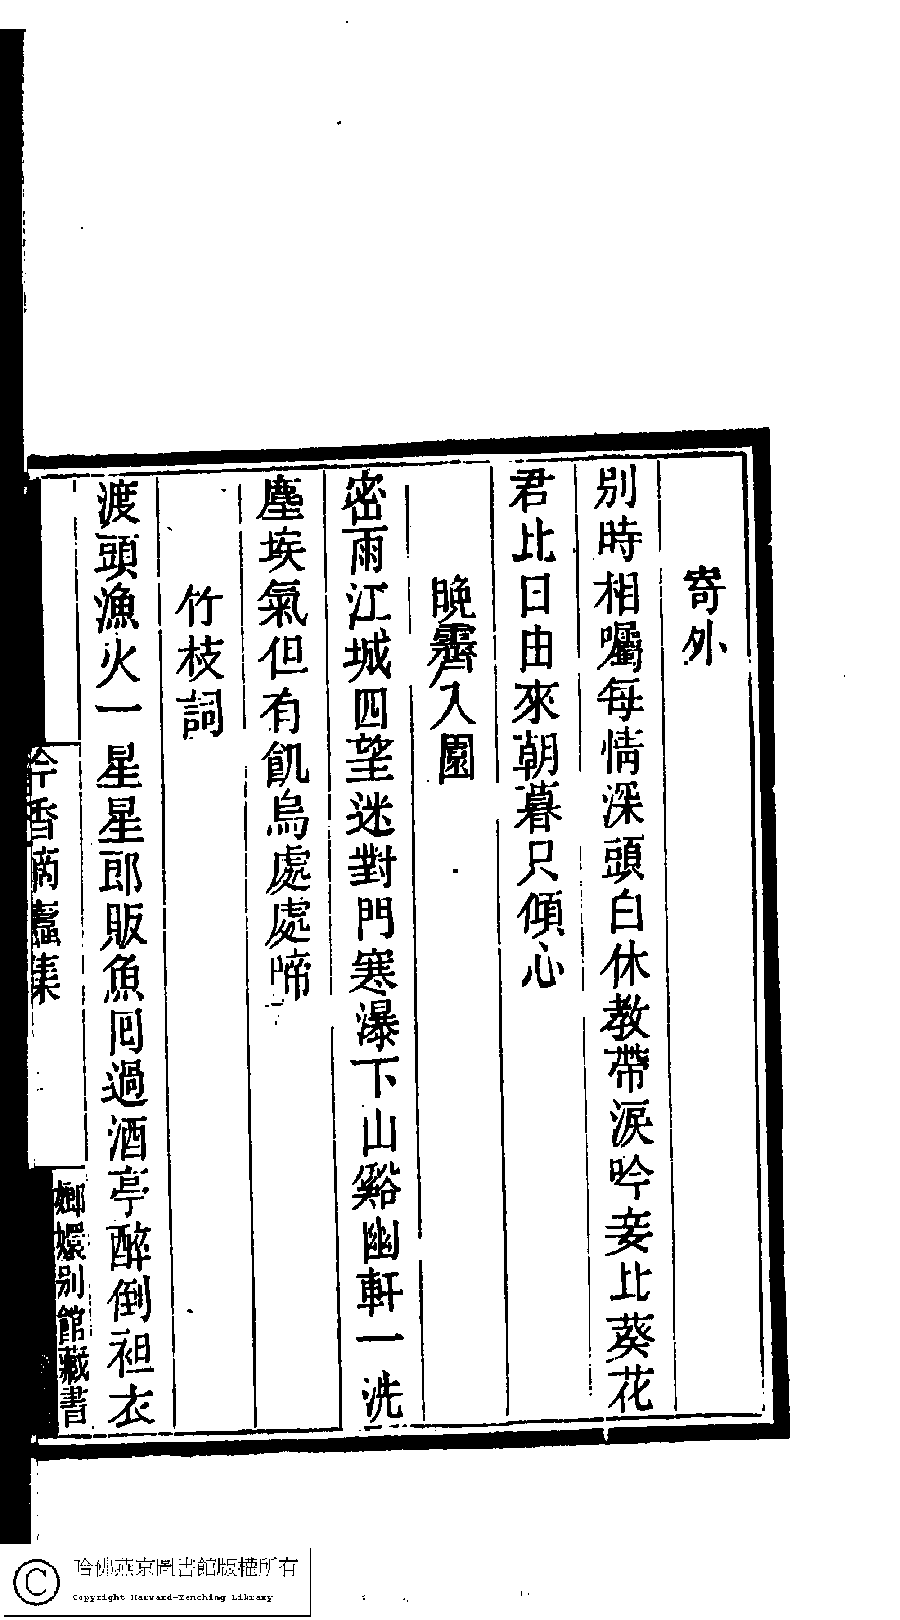 寄外
別時相囑每情深頭白休教帶淚吟妾比葵花
君比日由來朝暮只傾心
晚霽入園
密雨江城四望迷對門寒瀑下山谿幽軒一洗
塵埃氣但有飢烏處處啼
竹枝詞
渡頭漁火一星星郎販魚囘過酒亭醉倒袒衣
吟香病蠹集
嫏嬛別館藏書
哈佛燕京圖書館版權所有
Copyright Harvard-Yenching Library